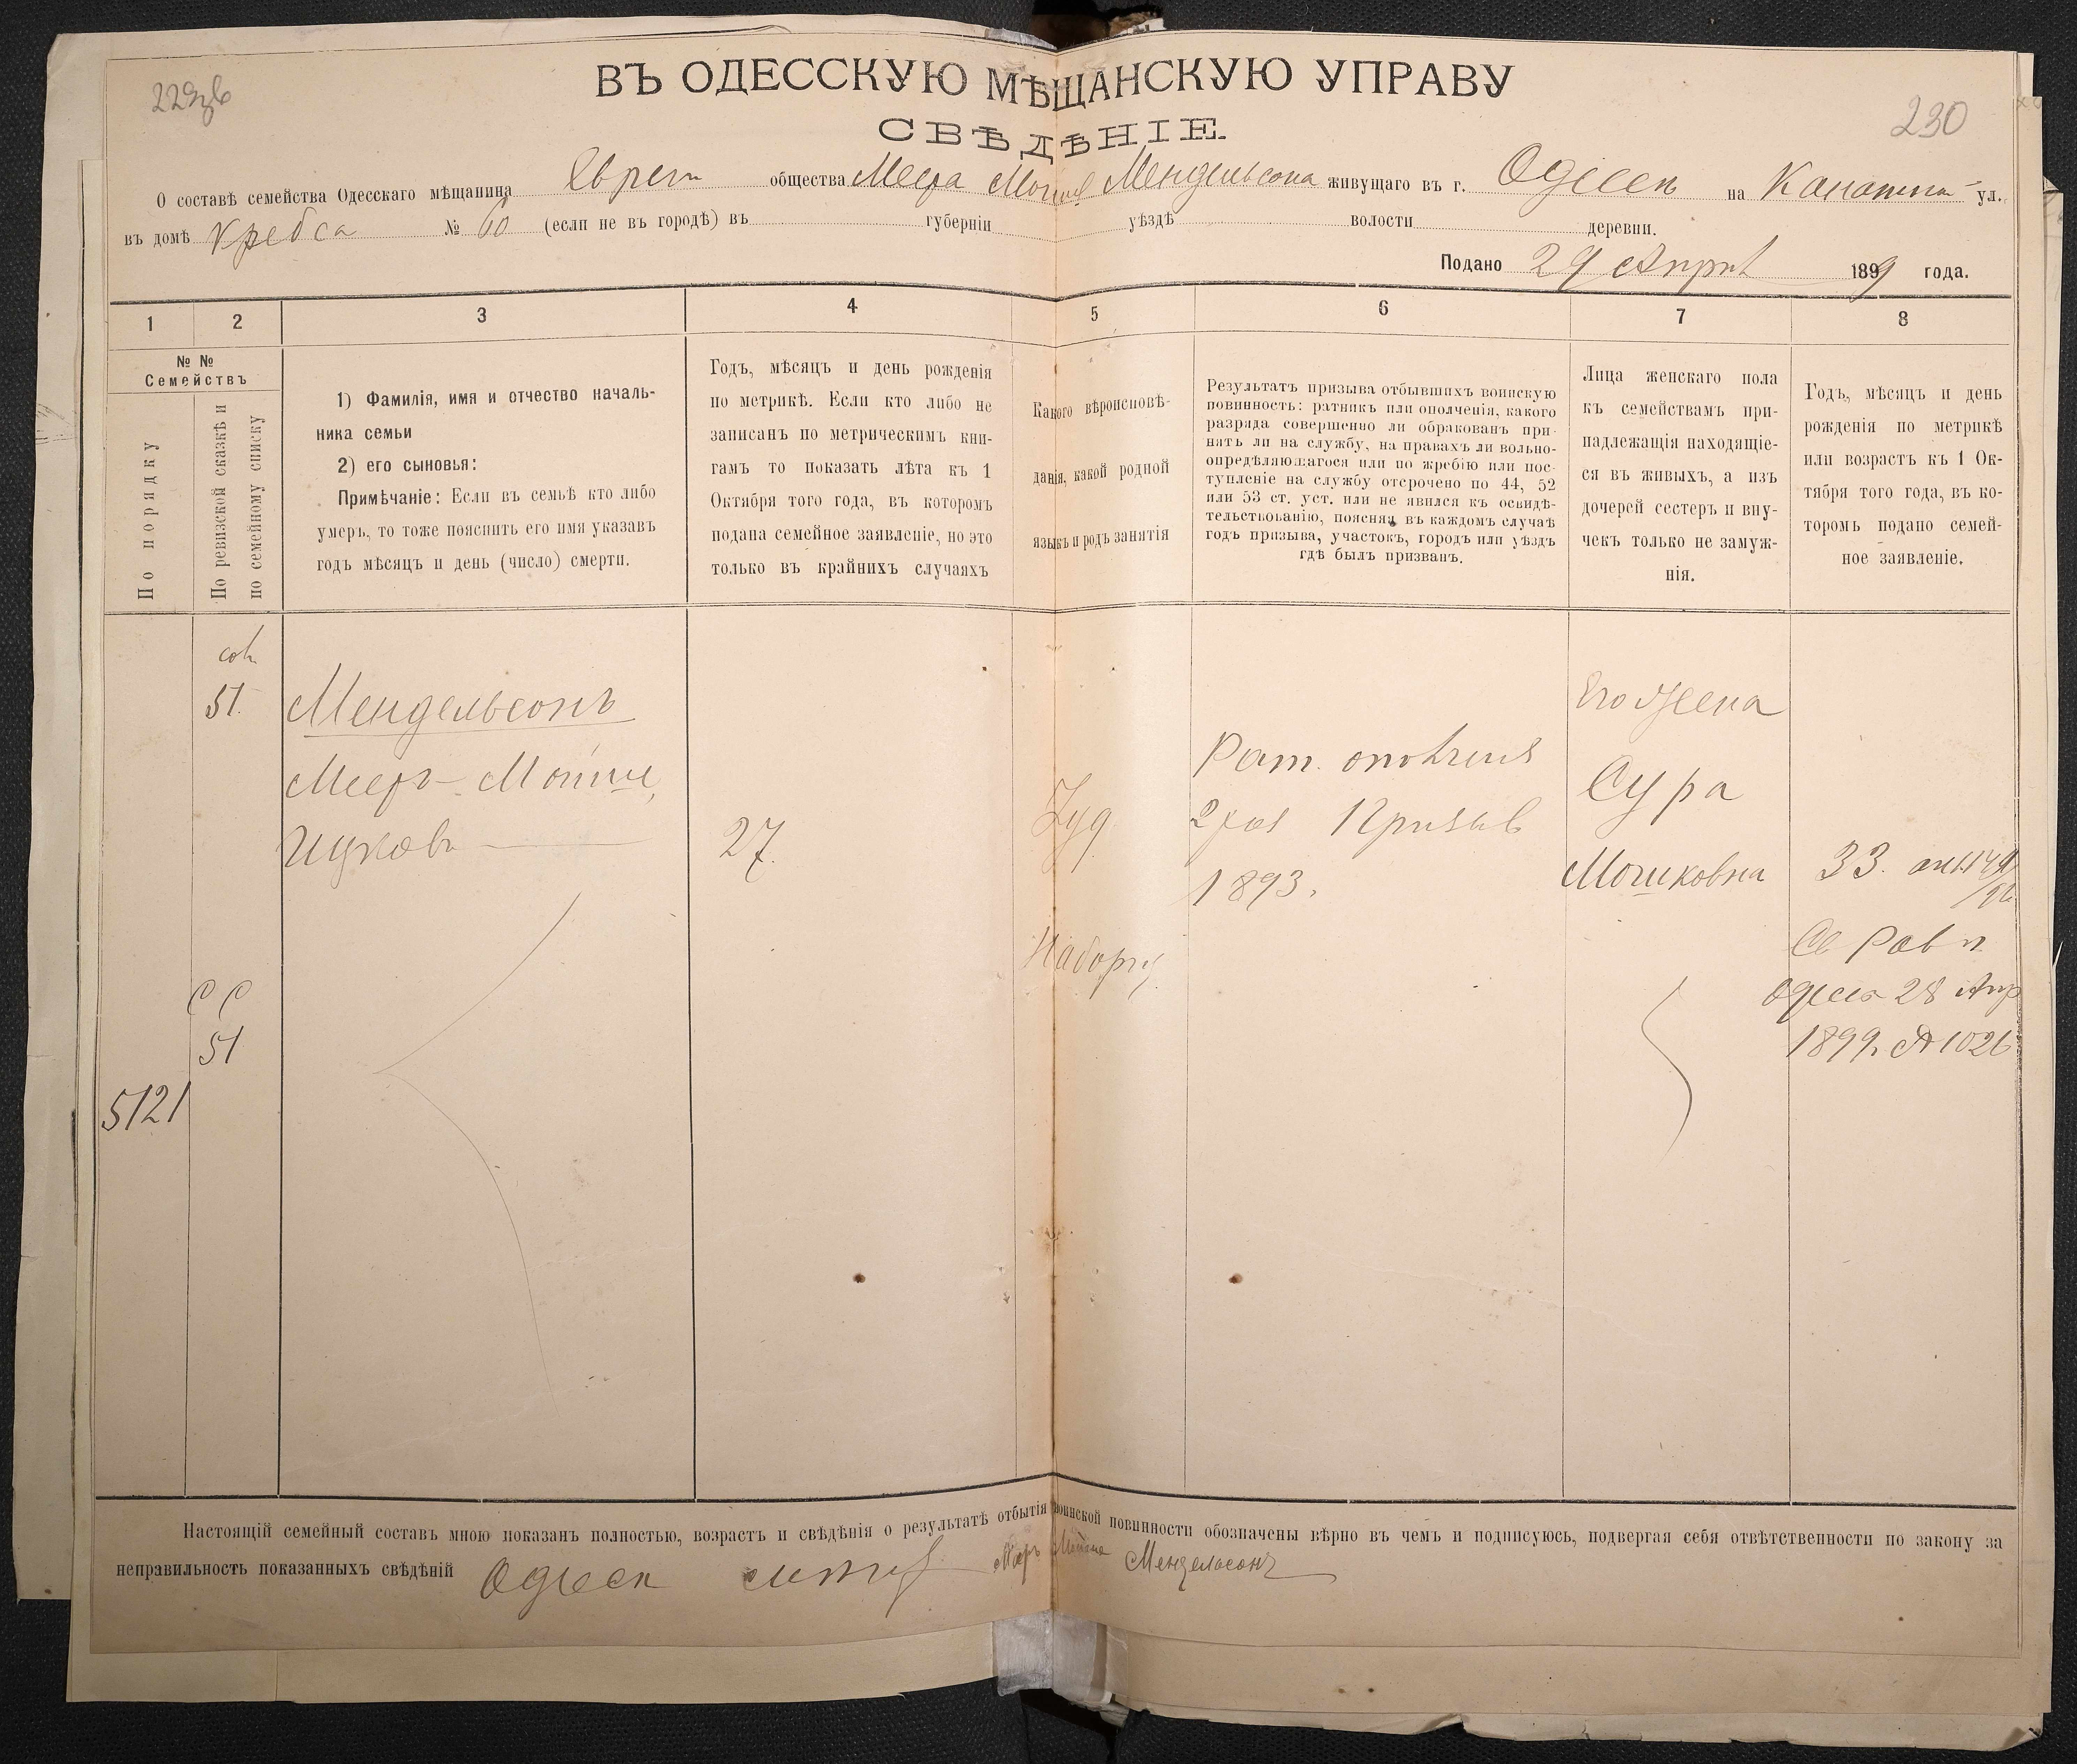 ВЪ ОДЕССКУЮ МѢЩАНСКУЮ УПРАВУ
СВѢДѢНІЕ
230
О составѣ семейства Одесскаго мѣщанина Евреи общества Меера Мойше Мендельсона живущаго въ г. Одессѣ на Канатной ул.
въ домѣ Кребса № 60 (если не въ городѣ) въ губерніи уѣздѣ волости деревни.
Подано 29 Апрѣл 1899 года.
1 2 3 4 5 6 7 8
№ №
Семействъ
По порядку
По ревизской сказкѣ и
по семейному списку
1) Фамилія, имя и отчество началь-
ника семьи
2) его сыновья:
Примѣчаніе: Если въ семьѣ кто либо
умеръ, то тоже пояснить его имя указавъ
годъ мѣсяцъ и день (число) смерти.
Годъ, мѣсяцъ и день рожденія
по метрикѣ. Если кто либо не
записанъ по метрическимъ кни-
гамъ то показать лѣта къ 1
Октября того года, въ которомъ
подана семейное заявленіе, но это
только въ крайнихъ случаяхъ
Какого вѣроисповѣ-
данія, какой родной
языкъ и родъ занятія
Результатъ призыва отбывшихъ воинскую
повинность: ратникъ или ополченія, какого
разряда совершенно ли обракованъ при-
нятъ ли на службу, на правахъ ли вольно-
опредѣляющагося или по жребію или пос-
тупленіе на службу отсрочено по 44, 52
или 53 ст. уст. или не явился къ освидѣ-
тельствованію, поясняя въ каждомъ случаѣ
годъ призыва, участокъ, городъ или уѣздъ
гдѣ былъ призванъ.
Лица женскаго пола
къ семействамъ при-
надлежащія находящіе-
ся въ живыхъ, а изъ
дочерей сестеръ и вну-
чекъ только не замуж-
нія.
Годъ, мѣсяцъ и день
рожденія по метрикѣ
или возрастъ къ 1 Ок-
тября того года, въ ко-
торомъ подано семей-
ное заявленіе.
51.
Мендельсонъ
Мееръ-Мойше
Ицковъ
27.
Іуд
Наборщ.
Рат. ополченія
2 раз Призыв
1893.
Его Жена
Сура
Мошковна
33.
Св Равв.
Одесса 28 Апр
1899 г. № 1026
С С
51
5121
Настоящій семейный составъ мною показанъ полностью, возрастъ и свѣдѣнія о результатѣ отбытія воинской повинности обозначены вѣрно въ чемъ и подписуюсь, подвергая себя отвѣтственности по закону за
неправильность показанныхъ свѣдѣній Одесск мѣщ Меер Мойше Мендельсонъ